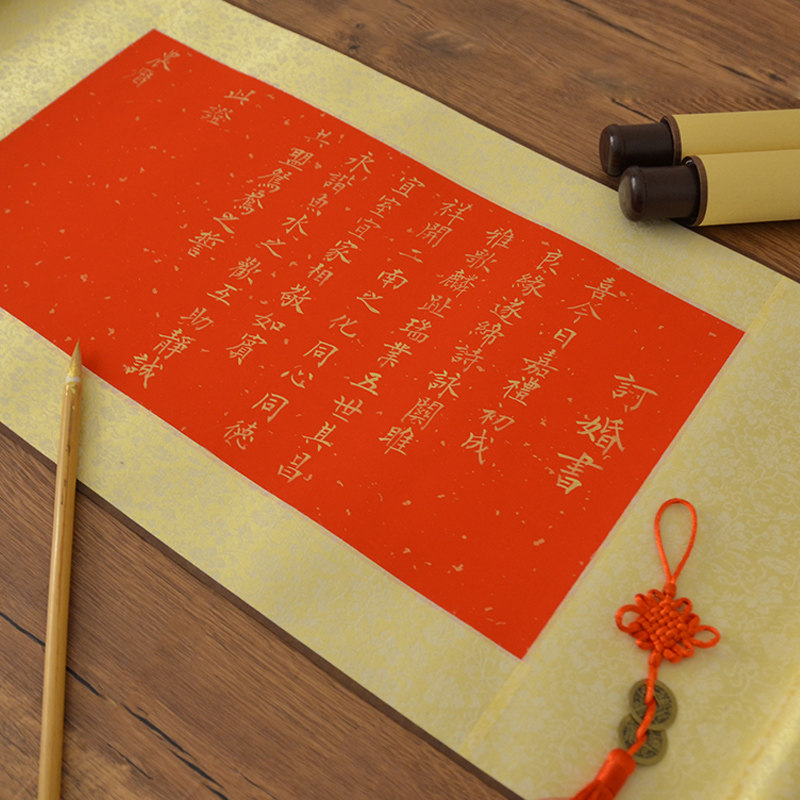 訂婚書
喜今日嘉禮初成
良緣遂締詩詠關雎
雅歌麟趾瑞業五世其昌
祥開二南之化同心同德
宜室宜家相敬如賓
永諧魚水之歡互助靜誠
共盟鴛鴦之誓
此證
農曆